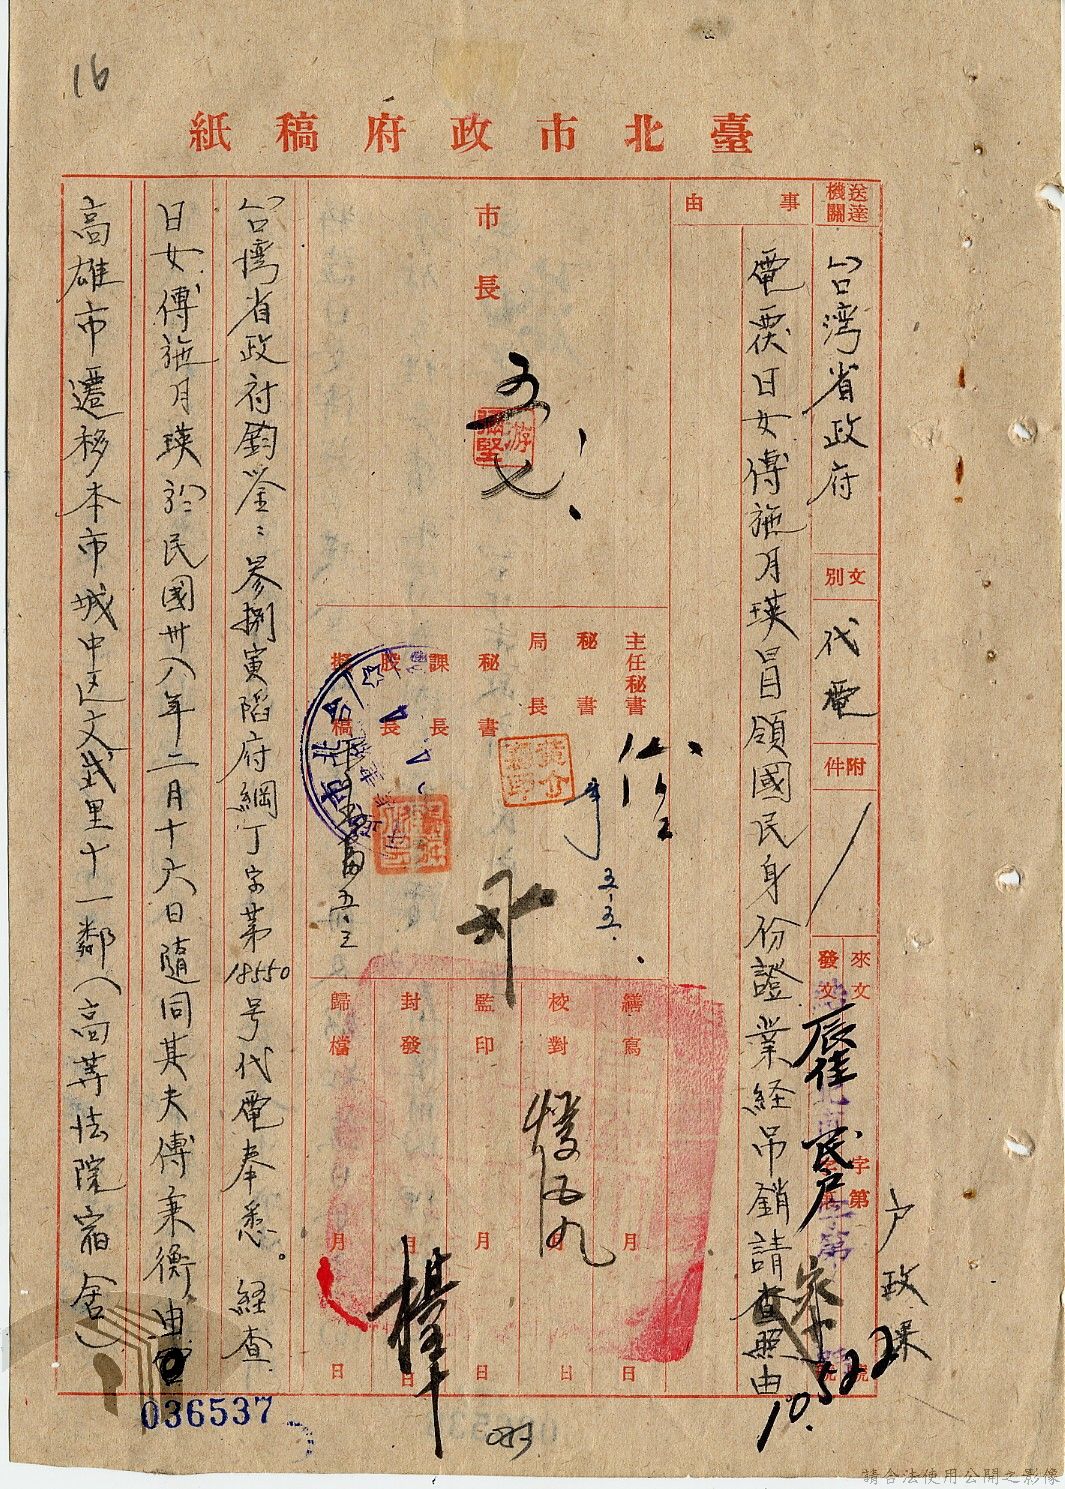 16
臺北市政府稿紙
送達機關
台湾省政府
文別
代電
附件
來文
發文
字第
辰佳
民戶
10522
戶政課
事由
電覆日女傅施月瑛冒領國民身份證業経吊銷請查照由
市長
游彌堅
主任秘書
秘書
局長
秘書
課長
股長
擬稿
五.五.
繕寫
月
日
校對
月
日
監印
月
日
封發
月
日
歸檔
月
日
台湾省政府鈞鉴：叁捌寅陷府綱丁字第18550号代電奉悉。経查
日女傅施月瑛於民國卅八年二月十六日隨同其夫傅秉衡由
高雄市遷移本市城中区文武里十一鄰（高等法院宿舍）
036537
033
請合法使用公開之影像